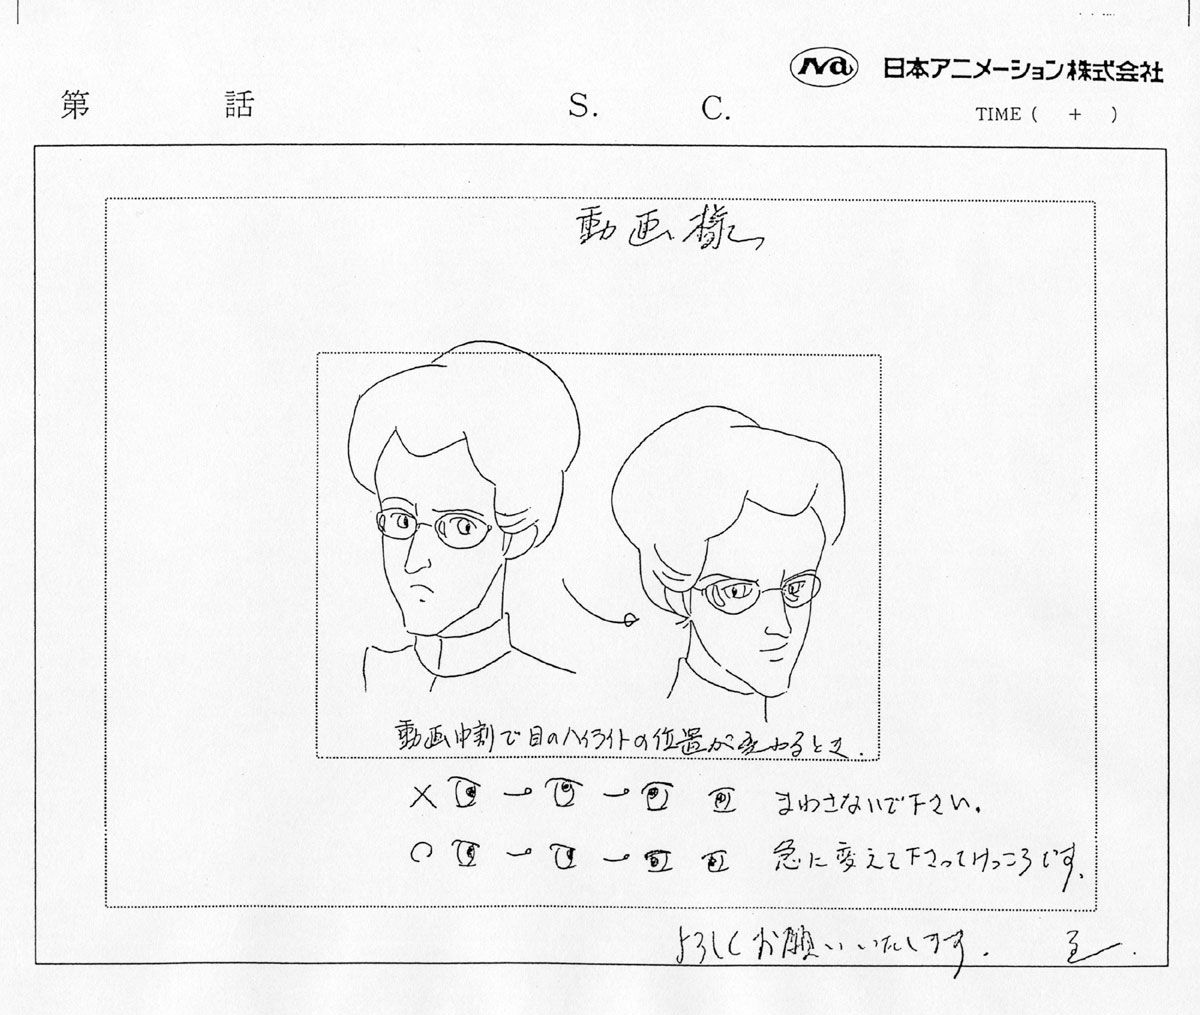 Na 日本アニメーション株式会社
第 話 S. C. TIME ( + )
動画様へ
動画中割で目のハイライトの位置が変わるとき.
× まわさないで下さい.
○ 急に変えて下さってけっこうです.
よろしくお願いいたします.